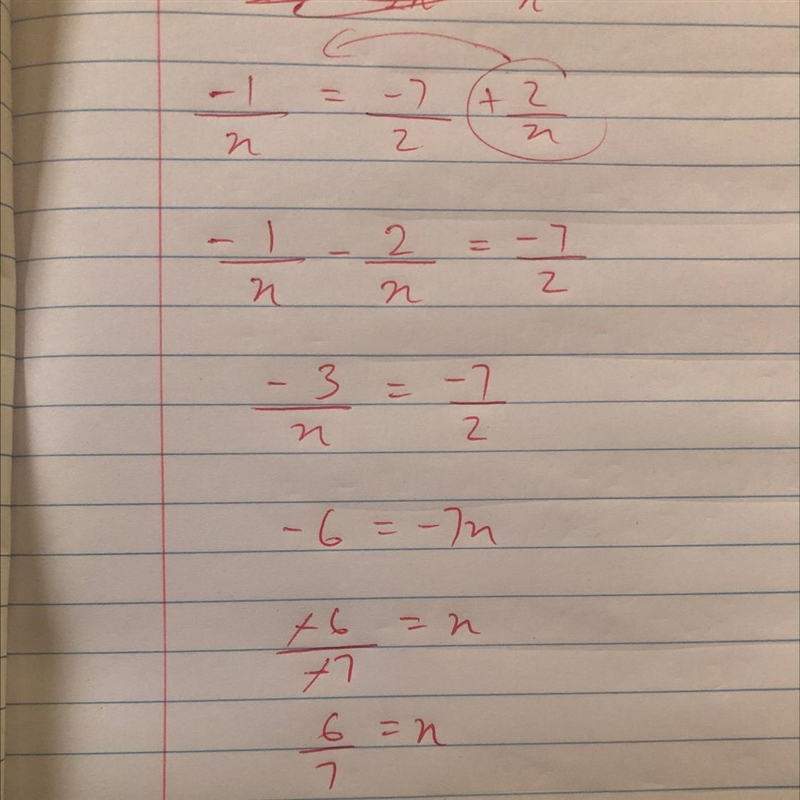 -1/x = -7/2 + 2/x
-1/x - 2/x = -7/2
-3/x = -7/2
-6 = -7x
-6/-7 = x
6/7 = x